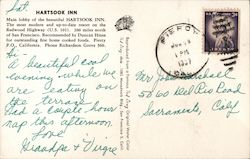 Sat.
HARTSOOK INN
Main lobby of the beautiful HARTSOOK INN.
The most modern and up-to-date room on the
Redwood Highway (U.S. 101). 200 miles north
of San Francisco. Recommended by Duncan Hines
for outstanding fine home cooked foods. Piercy
P.O., California. Phone Richardson Grove
A beautiful cool
evening while we
are eating on
the terrace.
Had a couple hours
nap this afternoon
Love
Grandpa + Virgie
PIERCY
PM
1957
CALIF.
Mr John
5060 Del Rio Road
Sacramento, Calif